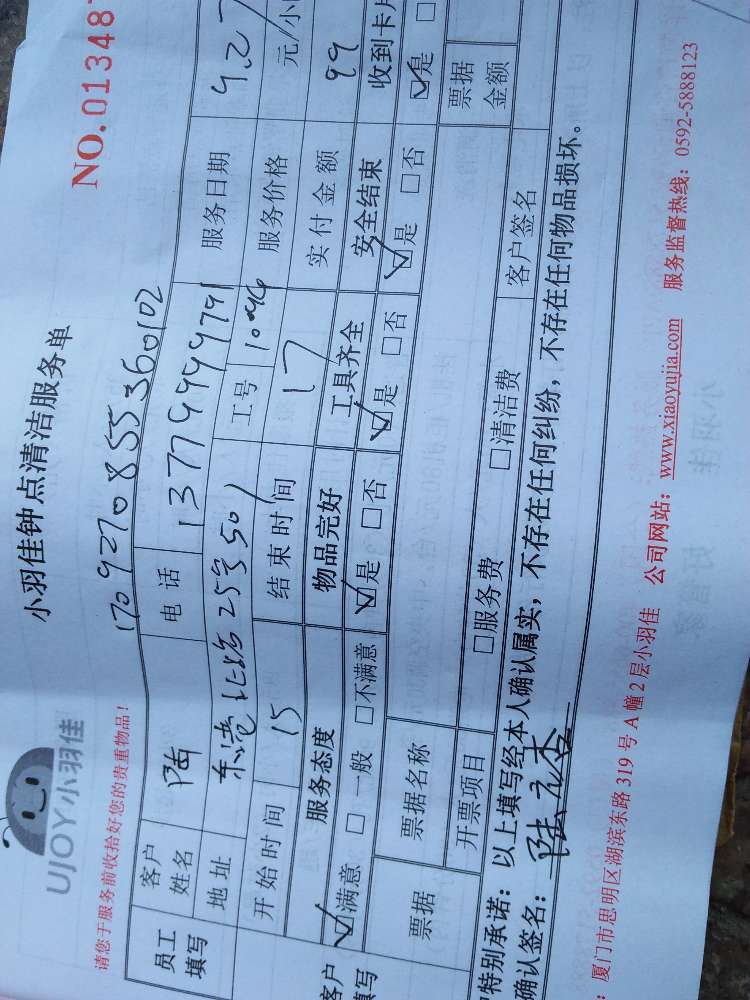 小羽佳钟点清洁服务单
UJOY小羽佳
NO.01348
1709270855360102
请您于服务前收拾好您的贵重物品！
员工填写 客户姓名 陆 电话 13779999791 服务日期 9.27
地址 25号501 工号
开始时间 15 结束时间 17 服务价格 元/小
实付金额 99
服务态度 物品完好 工具齐全 安全结束 收到卡片
☑满意 □一般 □不满意 ☑是 □否 ☑是 □否 ☑是 □否 ☑是
票据 票据名称 票据金额
开票项目 □服务费 □清洁费 客户签名
特别承诺：以上填写经本人确认属实，不存在任何纠纷，不存在任何物品损坏。
确认签名：陆
：厦门市思明区湖滨东路319号A幢2层小羽佳 公司网站：www.xiaoyujia.com 服务监督热线：0592-5888123